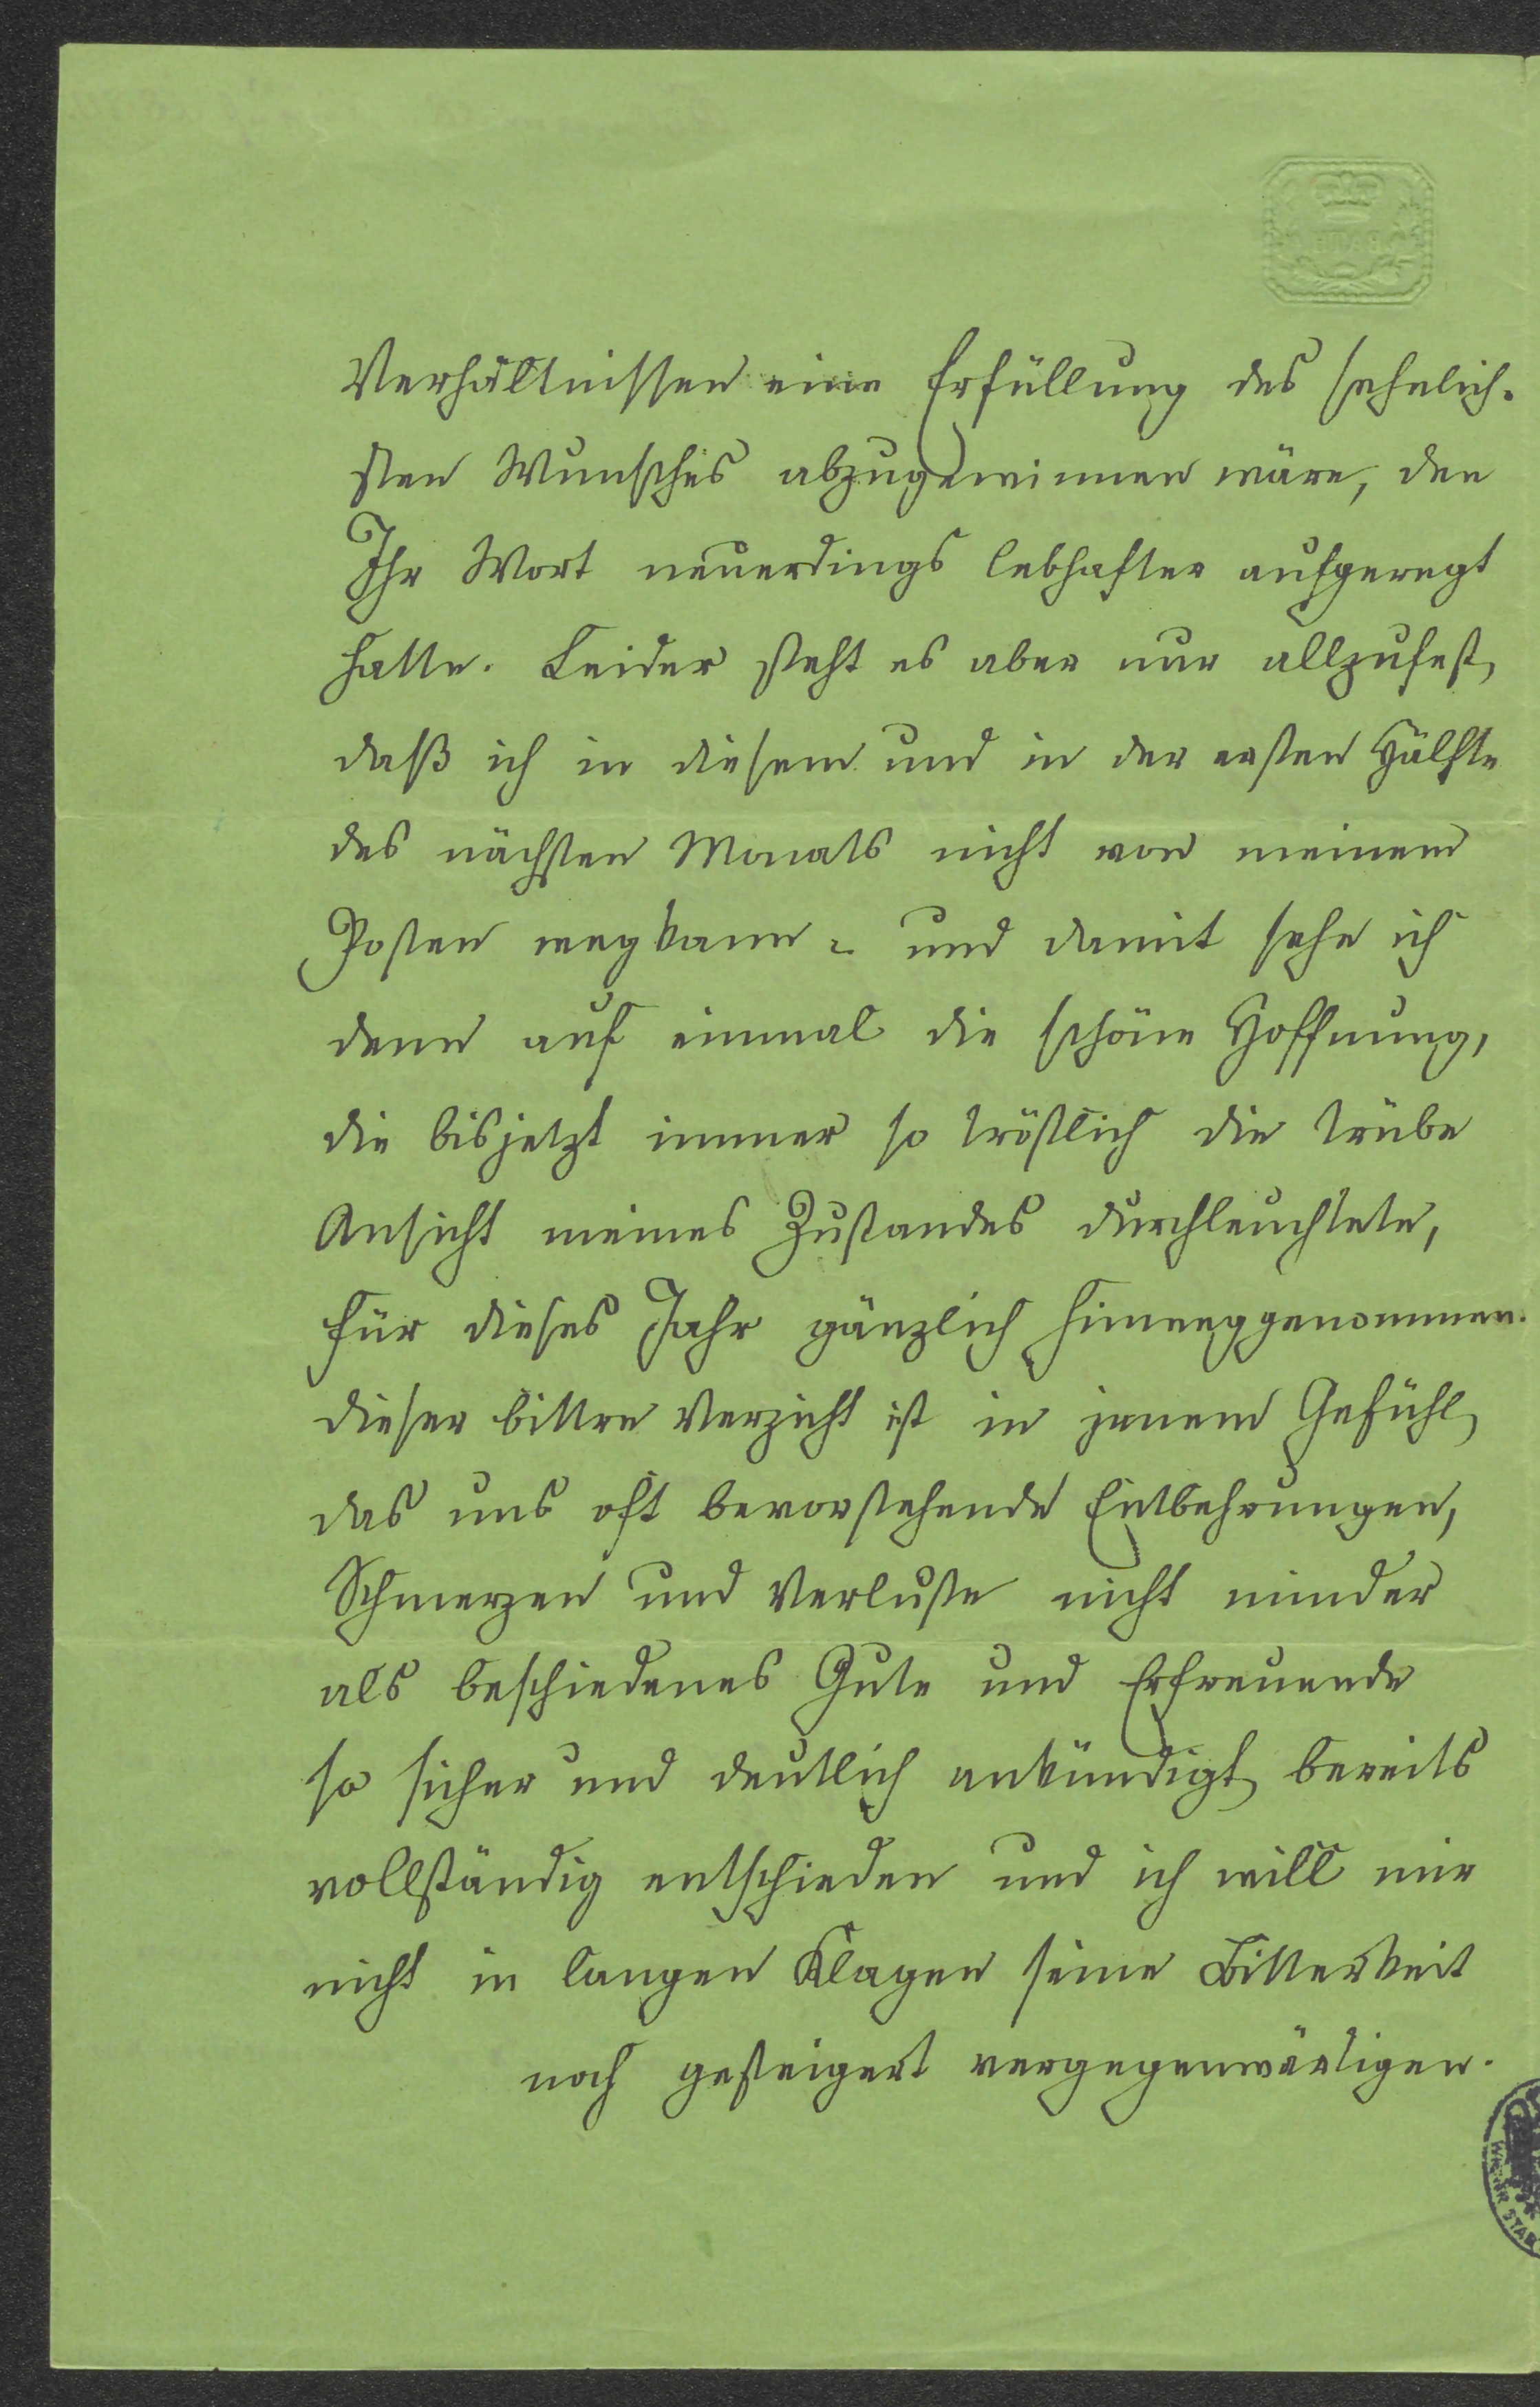 Verhältnissen eine Erfüllung des sehnlich-
sten Wunsches abzugewinnen wäre, den
Ihr Wort neuerdings lebhafter aufgeregt
hatte. Leider steht es aber nur allzufest,
daß ich in diesem und in der ersten Hälfte
des nächsten Monats nicht von meinem
Posten wegkann - und damit sehe ich
denn auf einmal die schöne Hoffnung,
die bisjetzt immer so tröstlich die trübe
Ansicht meines Zustandes durchleuchtete,
für dieses Jahr gänzlich hinweggenommen.
dieser bittre Verzicht ist in jenem Gefühl,
das uns oft bevorstehende Entbehrungen,
Schmerzen und Verluste nicht minder
als beschiedenes Gute und Erfreuende
so sicher und deutlich ankündigt, bereits
vollständig entschieden und ich will mir
nicht in langen Klagen seine Bitterkeit
noch gesteigert vergegenwärtigen.